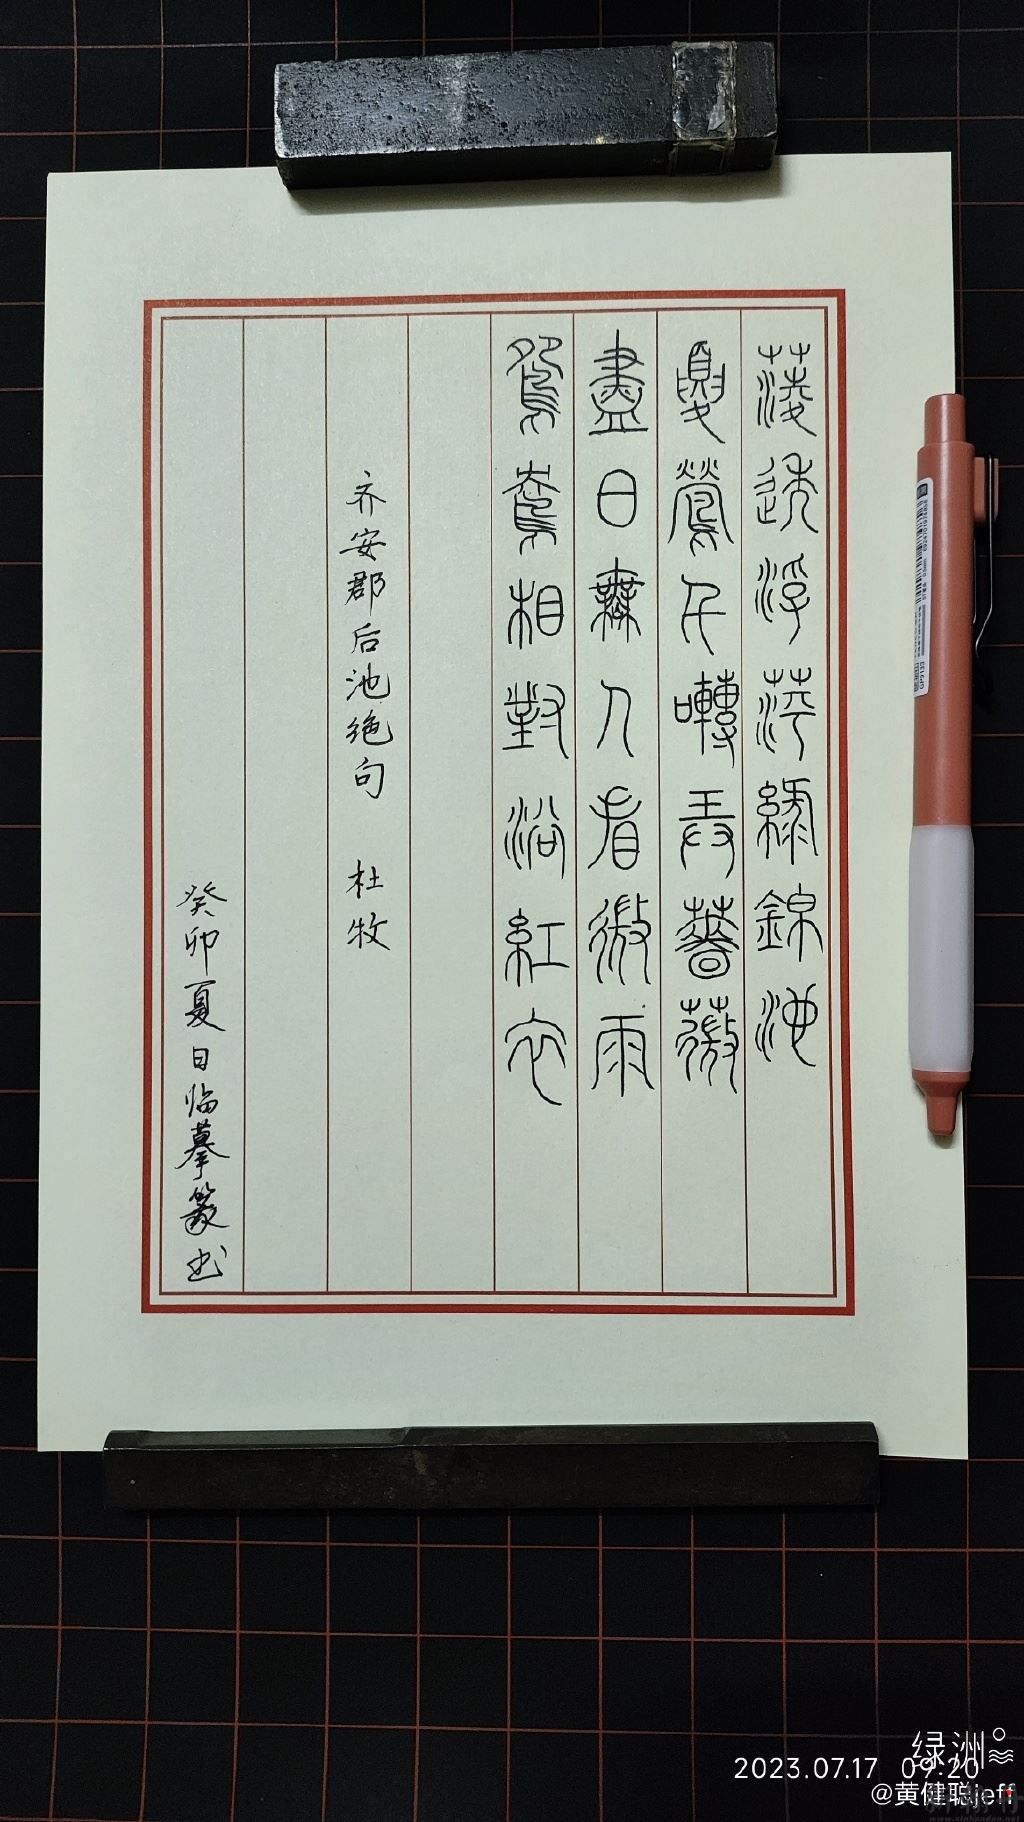 菱透浮萍綠錦池
夏鶯千囀弄薔薇
盡日無人看微雨
鴛鴦相對浴紅衣
齐安郡后池绝句 杜牧
癸卯夏日临摹篆书
绿洲
2023.07.17 09:20
@黄健聪jeff